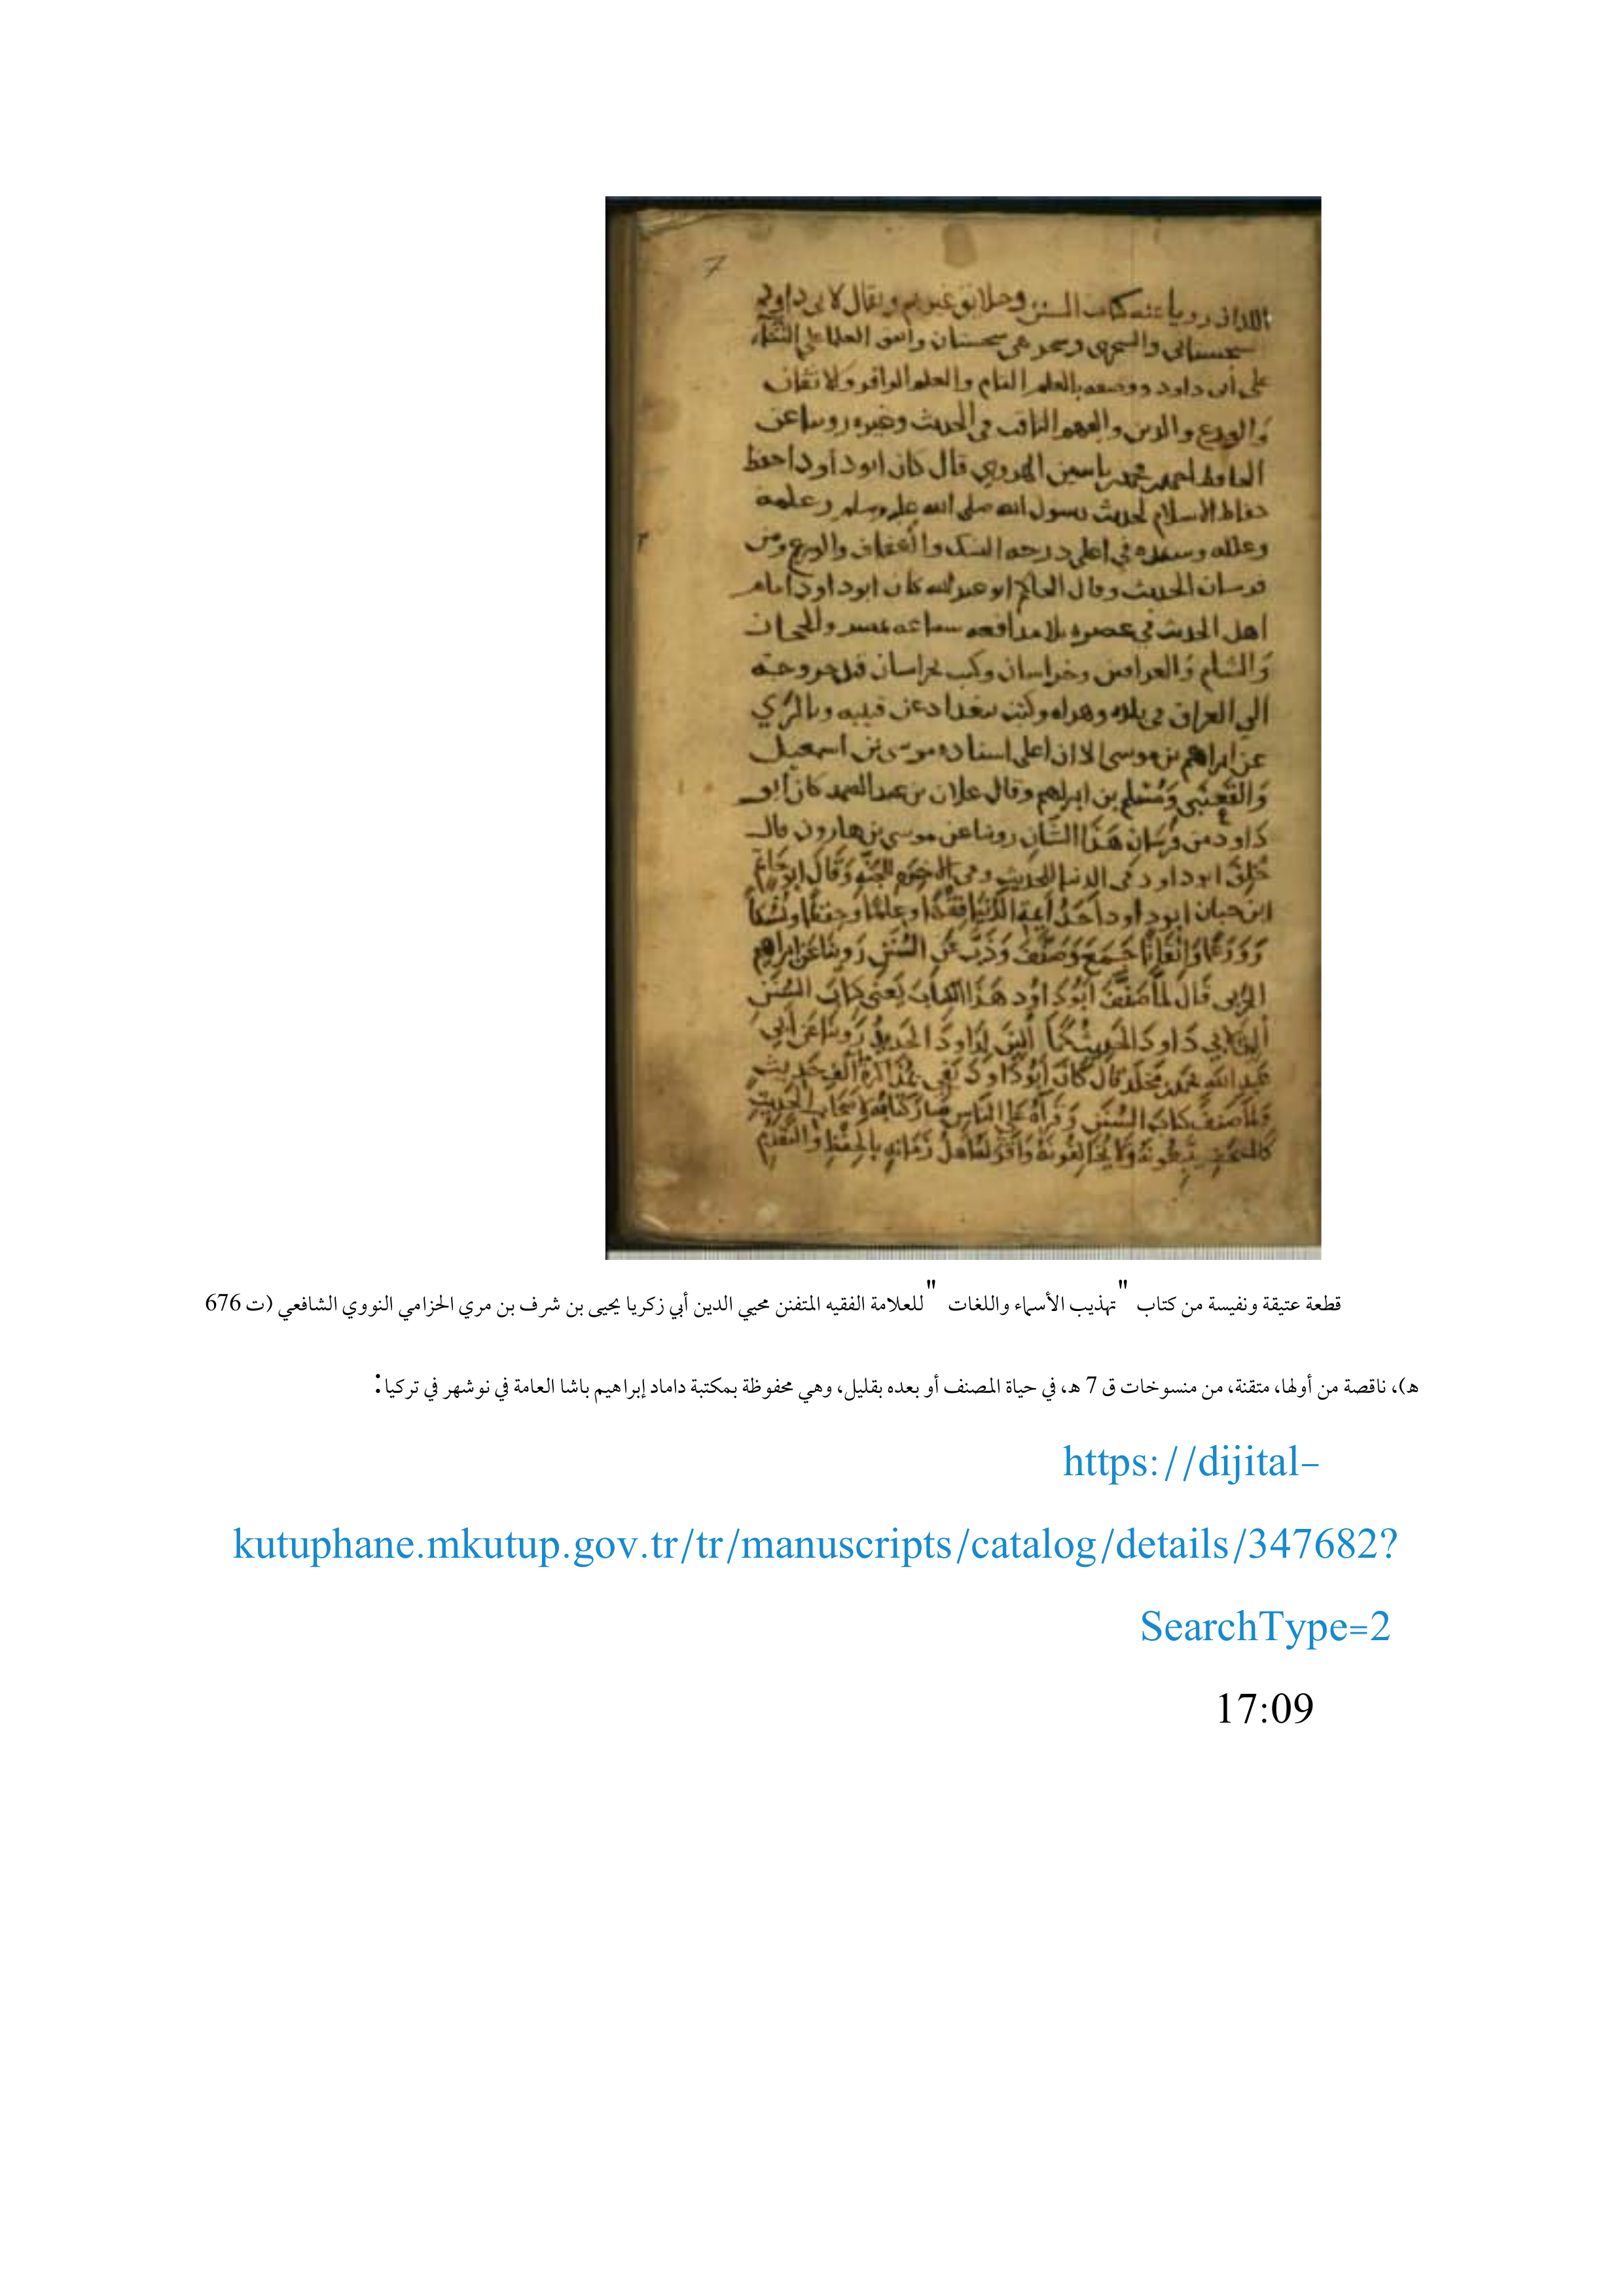 7
اللذان رويا عنه كتاب السنن وخلايق غيرهم ويقال لابى داود
سجستانى والسجزى وسجز هى سجستان واتفق العلما على الثناء
على أبى داود ووصفه بالعلم التام والعلم الوافر والاتقان
والورع والدين والفهم الثاقب فى الحديث وغيره روينا عن
الحافظ احمد بن محمد بن ياسين الهروي قال كان ابو داود احد
حفاظ الاسلام لحديث رسول الله صلى الله عليه وسلم وعلمه
وعلله وسنده في اعلى درجه النسك والعفاف والورع ومن
فرسان الحديث وقال الحاكم ابو عبد الله كان ابو داود امام
اهل الحديث في عصره بلا مدافعه سماعه بمصر والحجاز
والشام والعراقين وخراسان وكتب بخراسان قبل خروجه
الي العراق فى بلده وهراه وكتب ببغداد عن قتيبه وبالرَّي
عن ابراهيم بن موسى الا ان اعلى اسناده موسى بن اسمعيل
والقعنبي ومسلم بن ابراهيم وقال علان بن عبد الصمد كان ابو
داود من فرسان هذا الشان روينا عن موسى بن هارون قال
خلق ابو داود فى الدنيا للحديث وفى الاخره للجنه وقال ابو حاتم
ابن حبان ابو داود أحد أئمة الدنيا فقها وعلما وحفظا ونسكا
وورعا واتقانا جمع وصنف وذب عن السنن روينا عن ابراهيم
الحربى قال لما صنف أبو داود هذا الكتاب يعني كتاب السنن
ألين لأبي داود الحديث كما ألين لداود الحديد روينا عن أبي
عبد الله محمد بن مخلد قال كان أبو داود يفي بمذاكرة مائة ألف حديث
ولما صنف كتاب السنن وقرأه على الناس صار كتابه لأصحاب الحديث
كالمصحف يتبعونه ولا يخالفونه وأقر له أهل زمانه بالحفظ والتقدم
قطعة عتيقة ونفيسة من كتاب "تهذيب الأسماء واللغات" للعلامة الفقيه المتفنن محيي الدين أبي زكريا يحيى بن شرف بن مري الحزامي النووي الشافعي (ت 676
هـ)، ناقصة من أولها، متقنة، من منسوخات ق 7 هـ، في حياة المصنف أو بعده بقليل، وهي محفوظة بمكتبة داماد إبراهيم باشا العامة في نوشهر في تركيا:
https://dijital-
kutuphane.mkutup.gov.tr/tr/manuscripts/catalog/details/347682?
SearchType=2
17:09